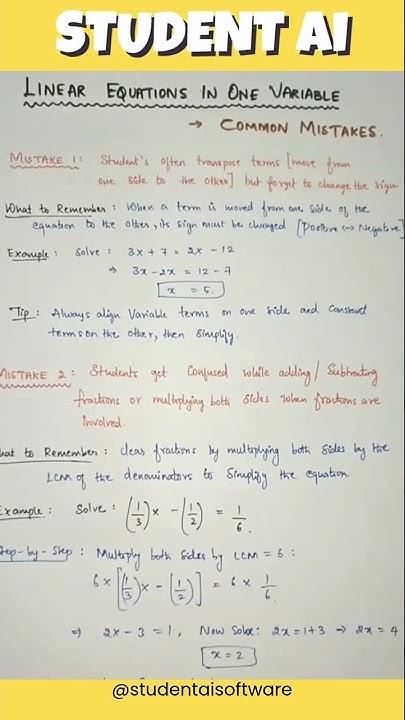 STUDENT AI
LINEAR EQUATIONS IN ONE VARIABLE
→ COMMON MISTAKES.
MISTAKE 1: Student's often transpose terms [move from
one side to the other] but forget to change the sign
What to Remember: When a term is moved from one side of the
equation to the other, its sign must be changed [Positive ↔ Negative]
Example: Solve: 3x + 7 = 2x - 12
⇒ 3x - 2x = 12 - 7
x = 5.
Tip: Always align Variable terms on one side and constant
terms on the other, then simplify.
MISTAKE 2: Students get confused while adding/Subtracting
fractions or multiplying both sides when fractions are
involved.
hat to Remember: clear fractions by multiplying both sides by the
LCM of the denominators to simplify the equation
Example: Solve: (1/3)x - (1/2) = 1/6.
Step-by-Step: Multiply both sides by LCM = 6:
6 × [(1/3)x - (1/2)] = 6 × 1/6.
⇒ 2x - 3 = 1, Now Solve: 2x = 1+3 → 2x = 4
x = 2
@studentaisoftware